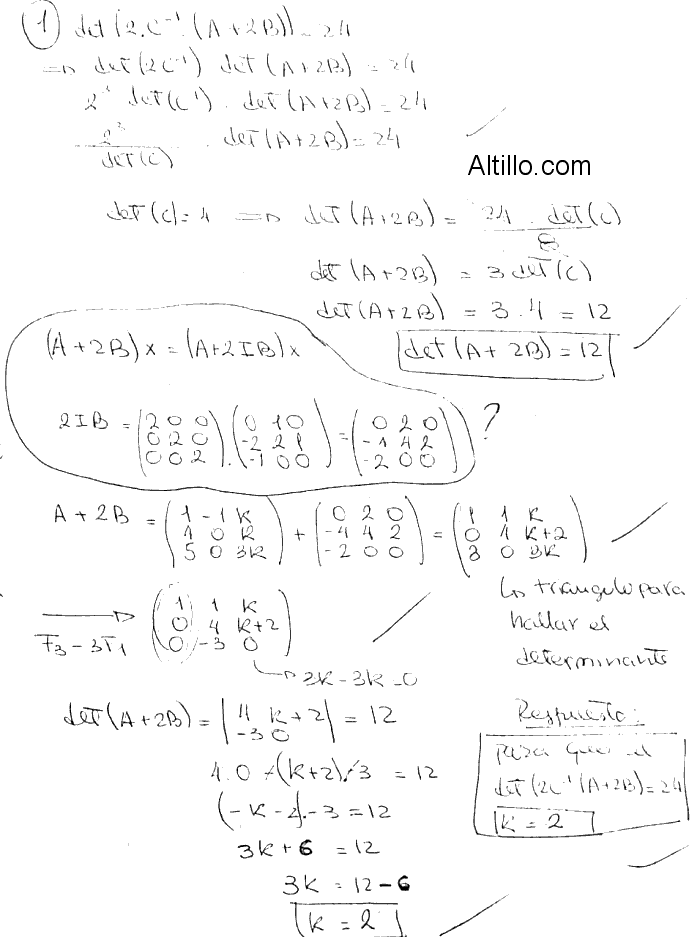 1 det(2.C⁻¹.(A+2B)) = 24
=> det(2C⁻¹) det(A+2B) = 24
2³ det(C⁻¹) . det(A+2B) = 24
2³/det(C) . det(A+2B) = 24
Altillo.com
det(C)=4 => det(A+2B) = 24 . det(C)/8
det(A+2B) = 3 det(C)
det(A+2B) = 3.4 = 12
det(A+2B) = 12
(A+2B)x = (A+2IB)x
2IB = (2 0 0; 0 2 0; 0 0 2) . (0 1 0; -2 2 1; -1 0 0) = (0 2 0; -4 4 2; -2 0 0) ?
A+2B = (1 -1 K; 4 0 K; 5 0 3K) + (0 2 0; -4 4 2; -2 0 0) = (1 1 K; 0 4 K+2; 3 0 3K)
↳ triangulo para
hallar el
determinante
F3 - 3F1 → (1 1 K; 0 4 K+2; 0 -3 0)
↳ 3K - 3K = 0
det(A+2B) = |4 K+2; -3 0| = 12
4.0 -(K+2).-3 = 12
(-K-2).-3 = 12
3K+6 = 12
3K = 12-6
K = 2
Respuesta:
para que el
det(2C⁻¹(A+2B)) = 24
K = 2